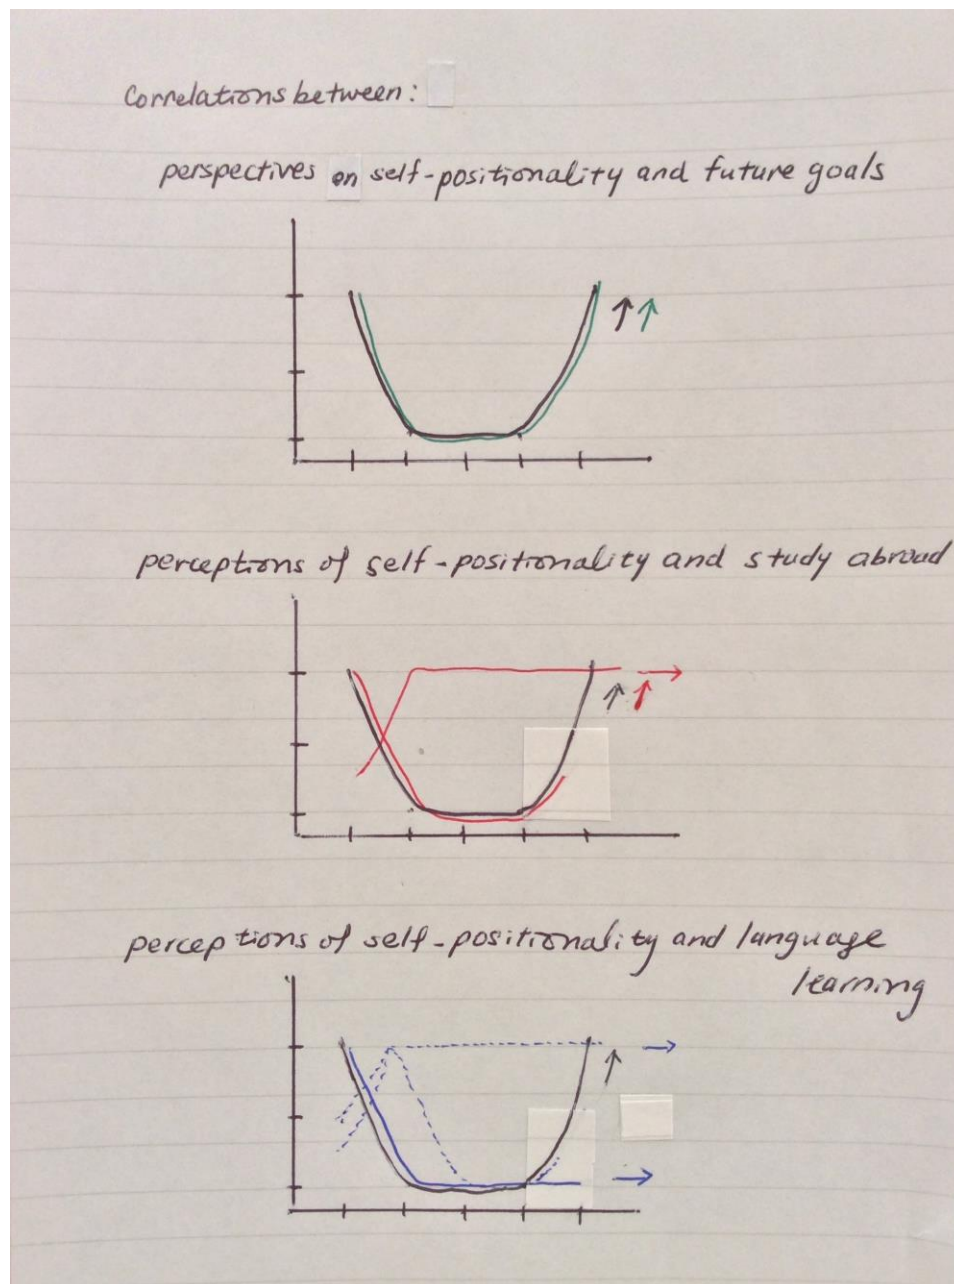 Correlations between:
perspectives on self-positionality and future goals
perceptions of self-positionality and study abroad
perceptions of self-positionality and language
learning